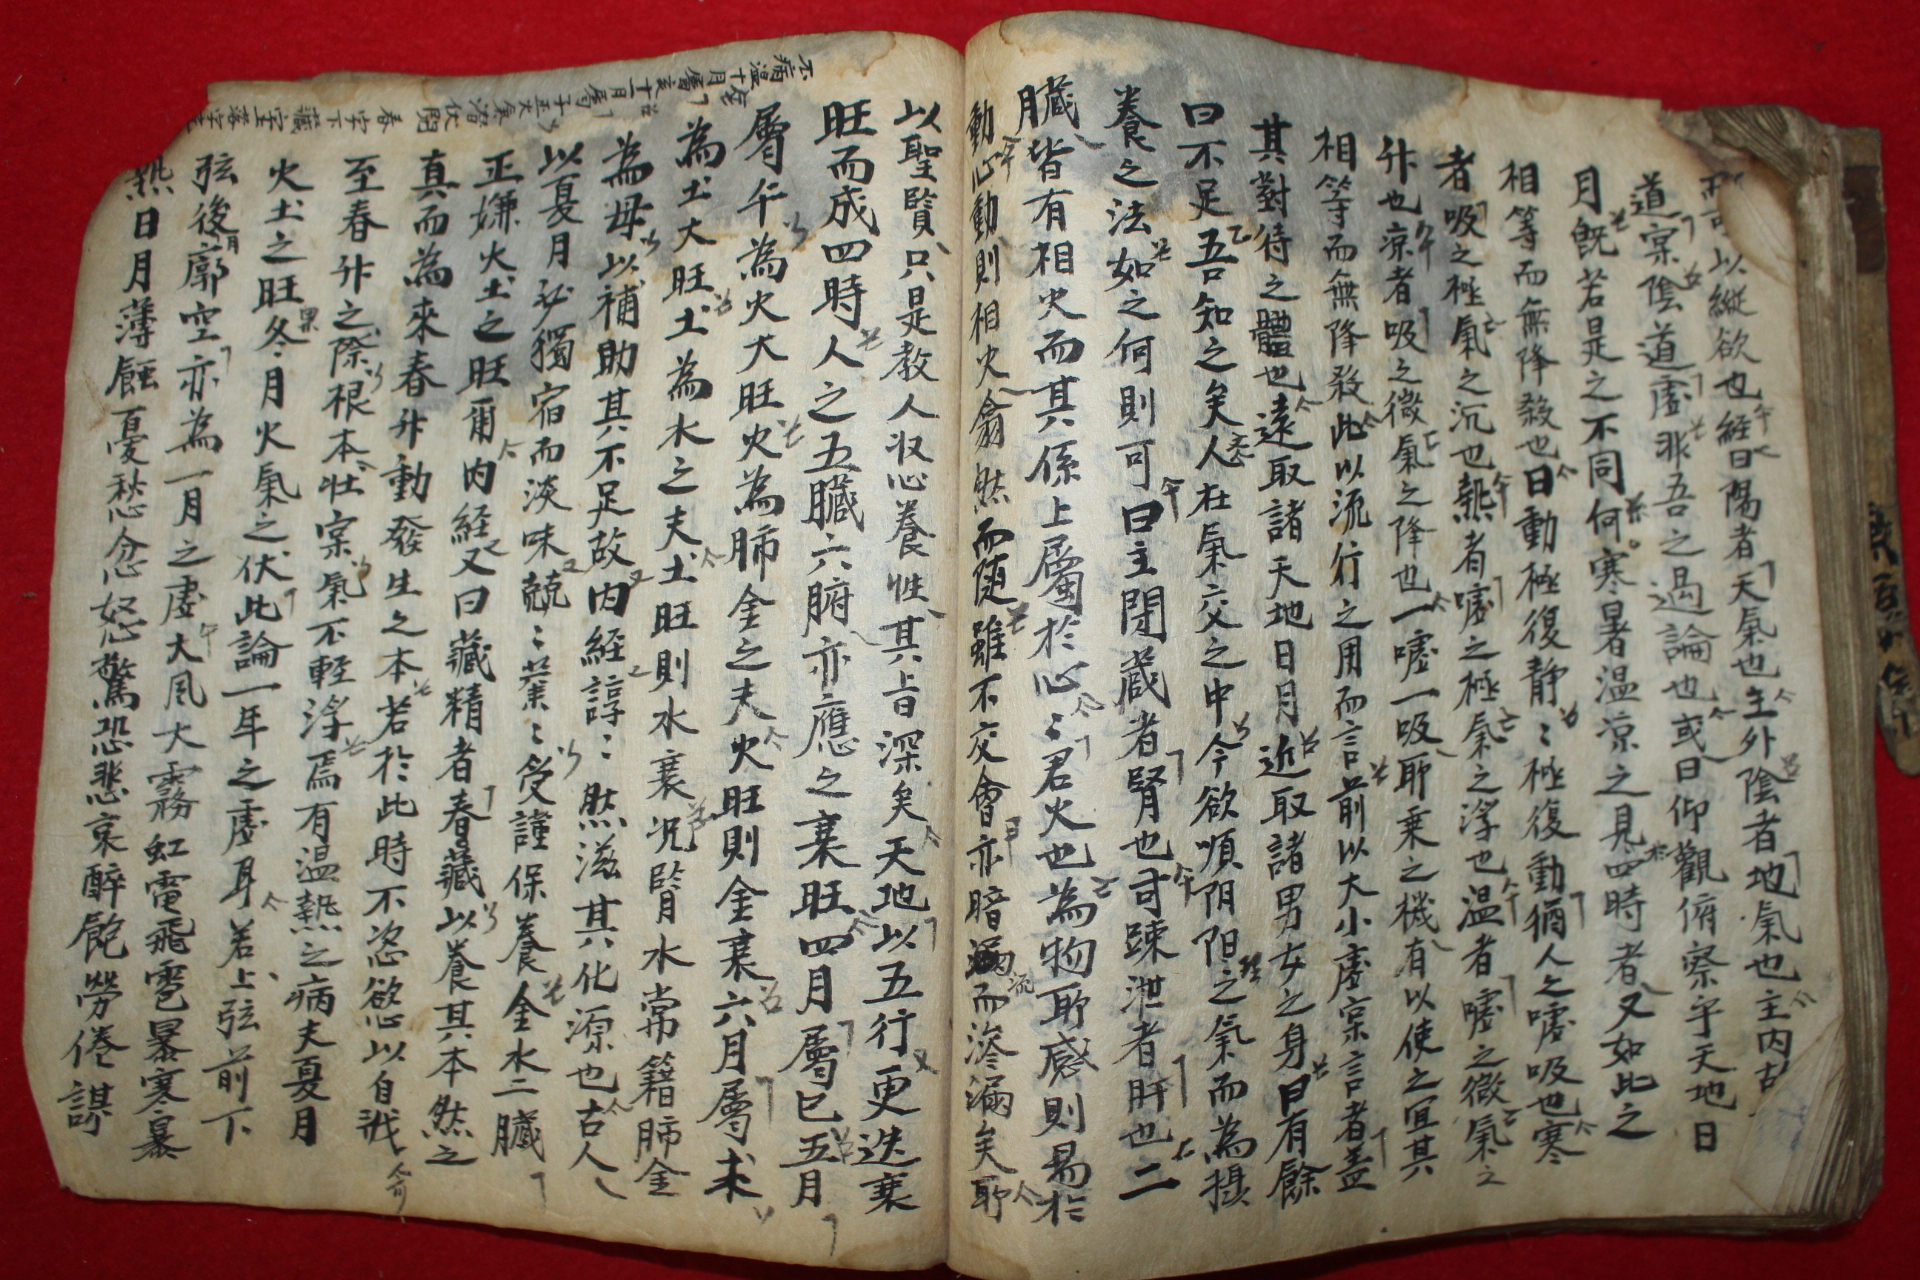 以縱欲也經曰陽者天氣也主外陰者地氣也主內古
道實陰道虛非吾之過論也或曰仰觀俯察乎天地日
月旣若是之不同何寒暑溫凉之見四時者又如此之
相等而無降殺也曰動極復静〻極復動猶人之噓吸也寒
者吸之極氣之沉也熱者噓之極氣之浮也温者噓之微氣之
升也凉者吸之微氣之降也一噓一吸所乗之機有以使之宜其
相等而無降殺此以流行之用而言前以大小虛實言者盖
其對待之體也遠取諸天地日月近取諸男女之身曰有餘
曰不足吾知之矣人在氣交之中今欲順阴阳之氣而為攝
養之法如之何則可曰主閉藏者腎也司疎泄者肝也二
臓皆有相火而其係上屬於心〻君火也為物所感則易於
動心動則相火翕然而随雖不交會亦暗流而滲漏矣所
以聖賢只是教人収心養性其旨深矣天地以五行更迭衰
旺而成四時人之五臓六腑亦應之衰旺四月屬巳五月
屬午為火大旺火為肺金之夫火旺則金衰六月屬未
為土大旺土為水之夫土旺則水衰况腎水常籍肺金
為母以補助其不足故內経諄〻然滋其化源也古人
以夏月必獨宿而淡味兢〻業〻受謹保養金水二臓
正嫌火土之旺爾內経又曰藏精者春藏以養其本然之
真而為來春升動發生之本若於此時不恣慾以自戕
至春升之際根本壮實氣不輕浮焉有温熱之病夫夏月
火土之旺冬月火氣之伏此論一年之虛耳若上弦前下
弦後月廓空亦為一月之虛大風大霧虹電飛雹暴寒暴
熱日月薄蝕憂愁忿怒驚恐悲哀醉飽勞倦謀